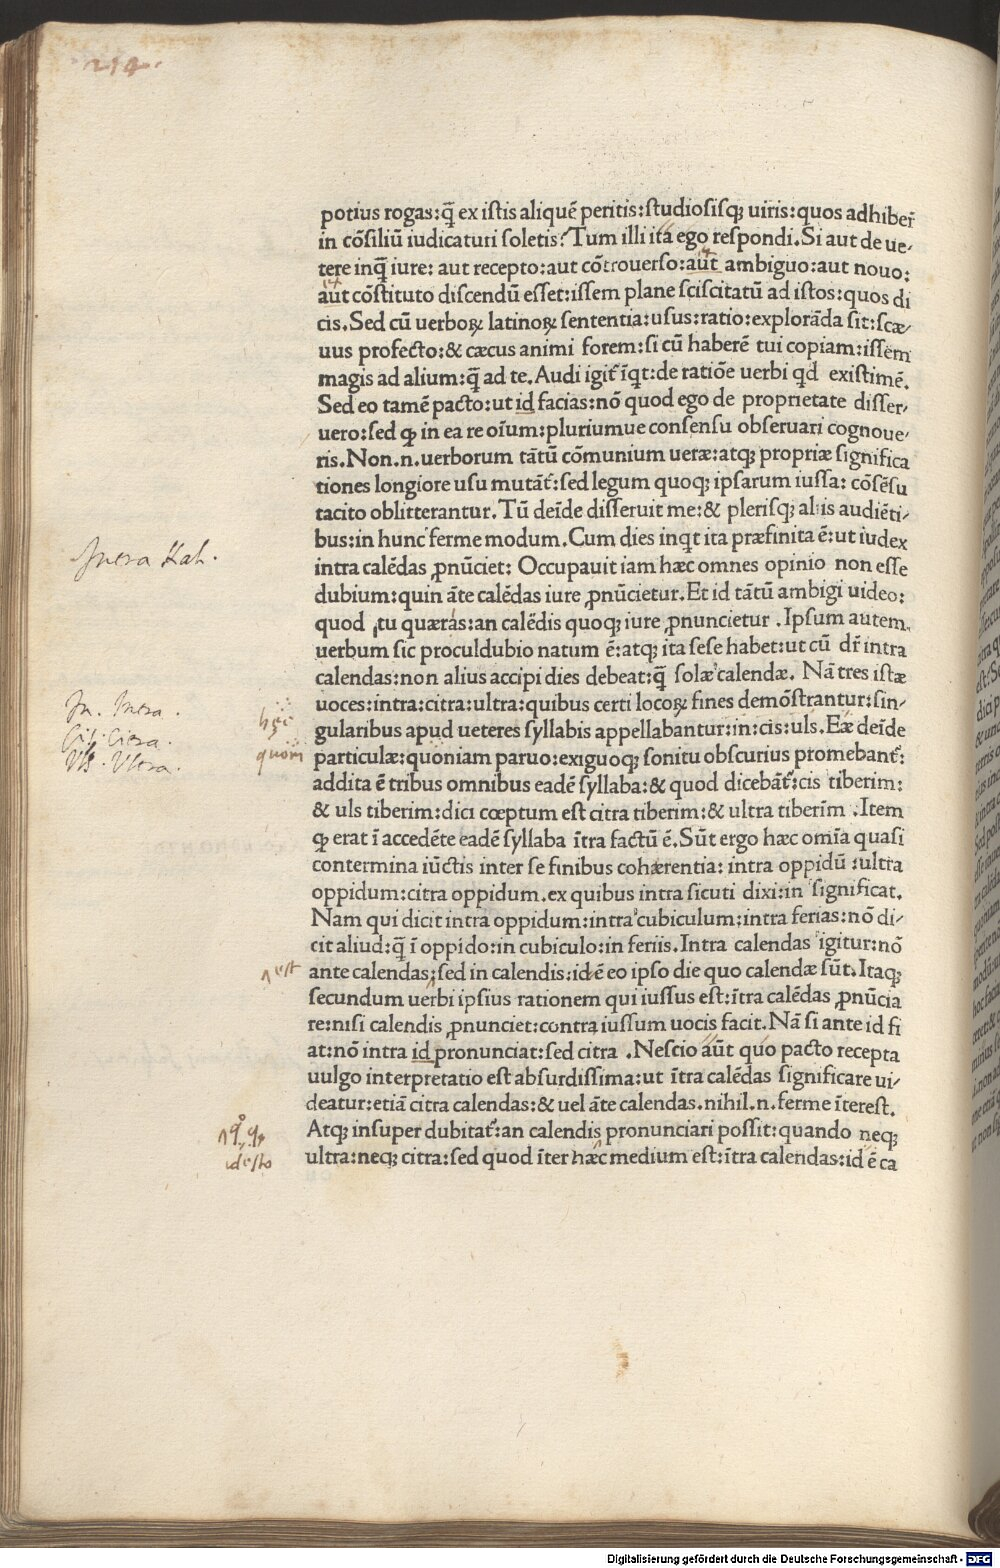 214
potius rogas:q̃ ex istis aliquẽ peritis:studiosisq; uiris:quos adhiber̃
in cõsiliũ iudicaturi soletis?Tum illi ita ego respondi.Si aut de ue-
tere inq̃ iure: aut recepto:aut cõtrouerso:aut ambiguo:aut nouo:
aut cõstituto discendũ esset:issem plane sciscitatũ ad istos:quos di
cis.Sed cũ uerboꝝ latinoꝝ sententia:usus:ratio:explorãda sit:scæ-
uus profecto:& cæcus animi forem:si cũ haberẽ tui copiam:issem
magis ad alium:q̃ ad te.Audi igit̃ ĩqt:de ratiõe uerbi qd existimẽ.
Sed eo tamẽ pacto:ut id facias:nõ quod ego de proprietate disser-
uero:sed ꝙ in ea re oĩum:pluriumue consensu obseruari cognoue-
ris.Non.n.uerborum tãtũ cõmunium ueræ:atq; propriæ significa
tiones longiore usu mutãt̃:sed legum quoq; ipsarum iussa: cõsẽsu
tacito oblitterantur.Tũ deĩde disseruit me:& plerisq; aliis audiẽti-
bus:in hunc ferme modum.Cum dies inqt ita præfinita ẽ:ut iudex
Intra Kal.
intra calẽdas ꝓnũciet: Occupauit iam hæc omnes opinio non esse
dubium:quin ãte calẽdas iure ꝓnũcietur.Et id tãtũ ambigi uideo:
quod tu quæras:an calẽdis quoq; iure ꝓnuncietur .Ipsum autem
uerbum sic proculdubio natum ẽ:atq; ita sese habet:ut cũ dr̃ intra
calendas:non alius accipi dies debeat:q̃ solæ calendæ. Nã tres istæ
In. Intra.
uoces:intra:citra:ultra:quibus certi locoꝝ fines demõstrantur:sin-
hęc
Cis. Citra.
gularibus apud ueteres syllabis appellabantur:in:cis:uls.Eæ deĩde
quom
Uls. Ultra.
particulæ:quoniam paruo:exiguoq; sonitu obscurius promebant̃:
addita ẽ tribus omnibus eadẽ syllaba:& quod dicebãt̃:cis tiberim:
& uls tiberim:dici cœptum est citra tiberim:& ultra tiberim .Item
ꝙ erat ĩ accedẽte eadẽ syllaba ĩtra factũ ẽ.Sũt ergo hæc omĩa quasi
contermina iũctis inter se finibus cohærentia: intra oppidũ :ultra
oppidum:citra oppidum.ex quibus intra sicuti dixi:in significat.
Nam qui dicit intra oppidum:intra cubiculum:intra ferias:nõ di-
cit aliud:q̃ ĩ oppido:in cubiculo:in feriis.Intra calendas igitur:nõ
est
ante calendas:sed in calendis:id ẽ eo ipso die quo calendæ sũt.Itaq;
secundum uerbi ipsius rationem qui iussus est:ĩtra calẽdas ꝓnũcia
re:nisi calendis ꝓnunciet:contra iussum uocis facit.Nã si ante id fi
at:nõ intra id pronunciat:sed citra .Nescio aut quo pacto recepta
uulgo interpretatio est absurdissima:ut ĩtra calẽdas significare ui-
deatur:etiã citra calendas:& uel ãte calendas.nihil.n.ferme ĩterest.
Atq; insuper dubitat̃:an calendis pronunciari possit:quando neq;
ultra:neq; citra:sed quod ĩter hæc medium est:ĩtra calendas:id ẽ ca
Digitalisierung gefördert durch die Deutsche Forschungsgemeinschaft - DFG